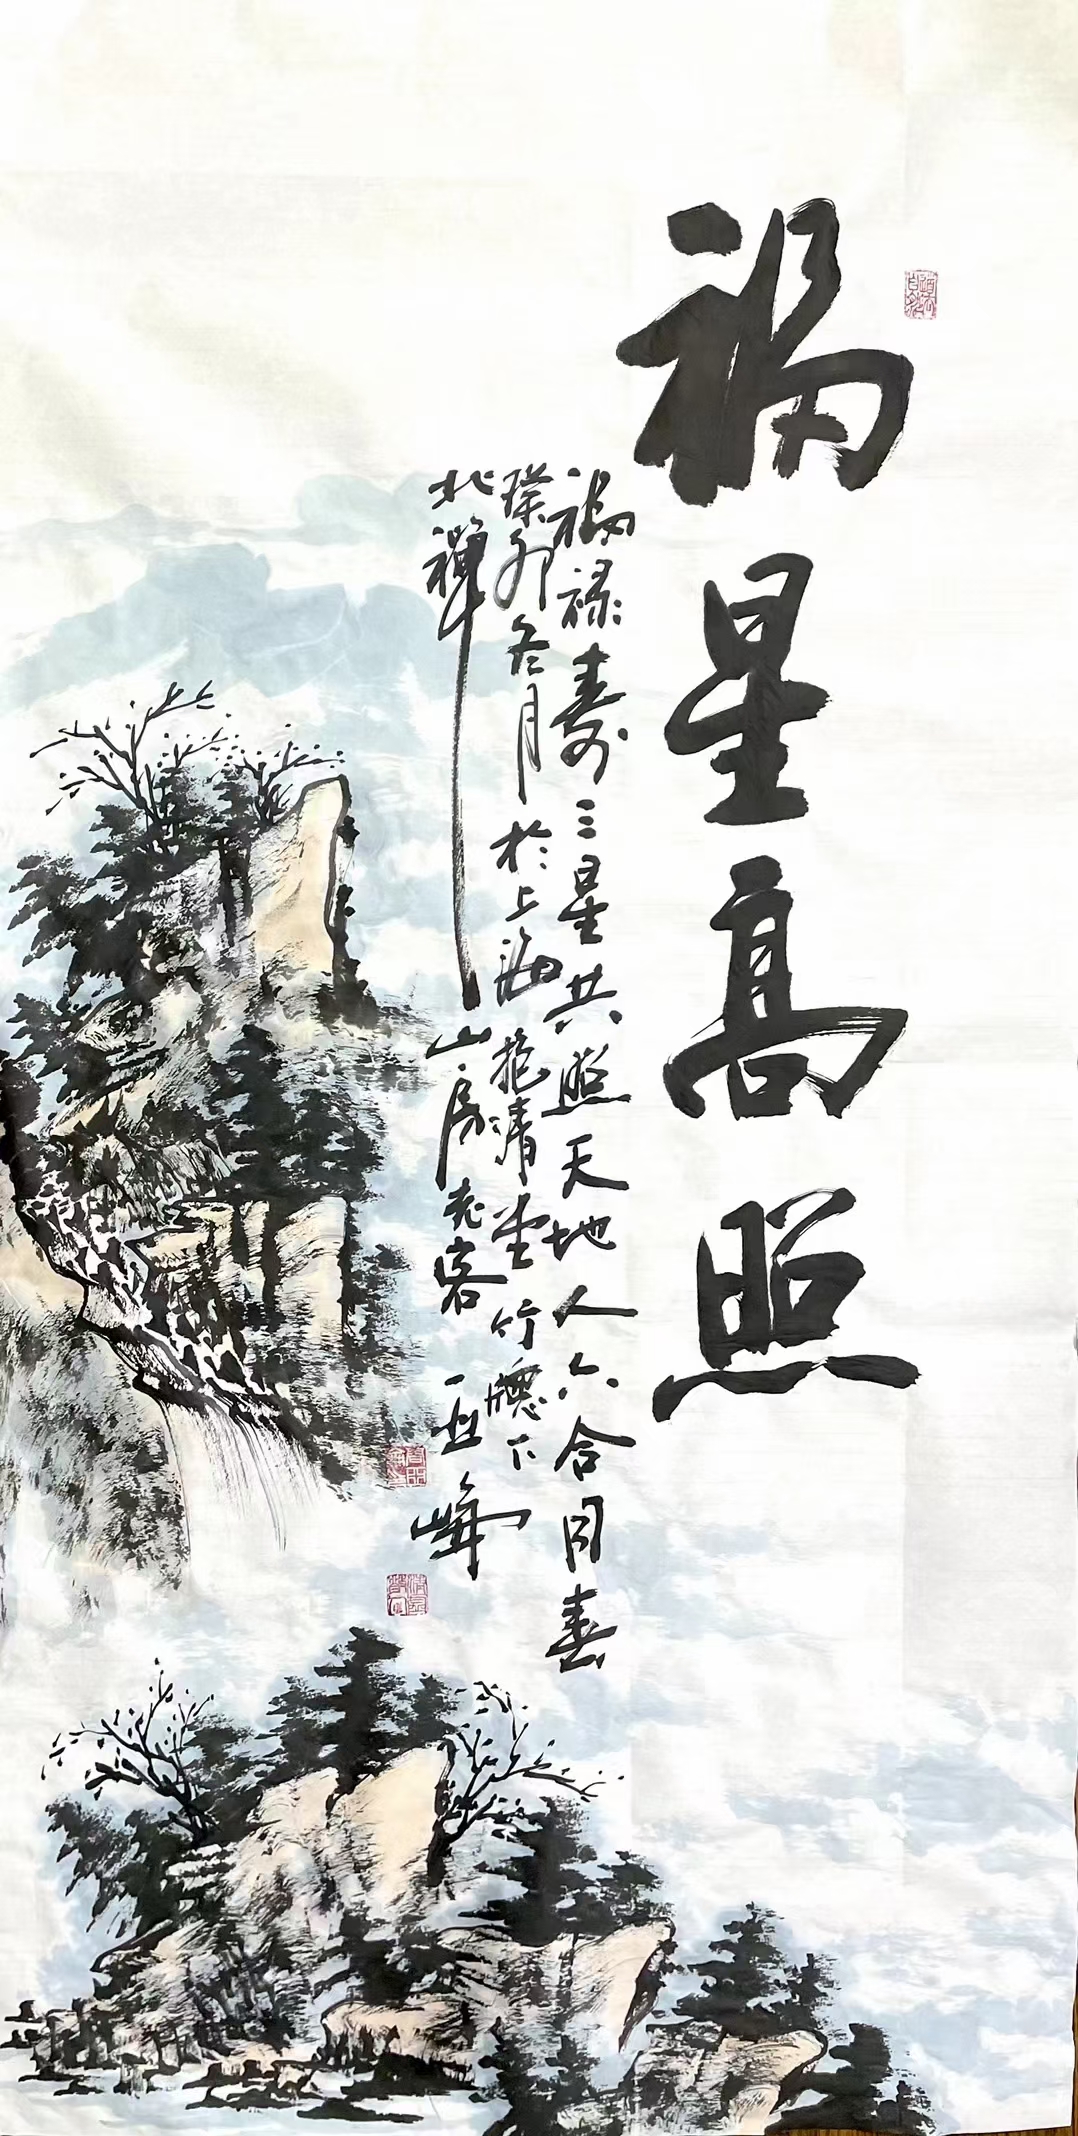 福星高照
福禄寿三星共照天地人六合同春
癸卯冬月於上海挹清堂竹窗下
北禅山房老客一丘峰